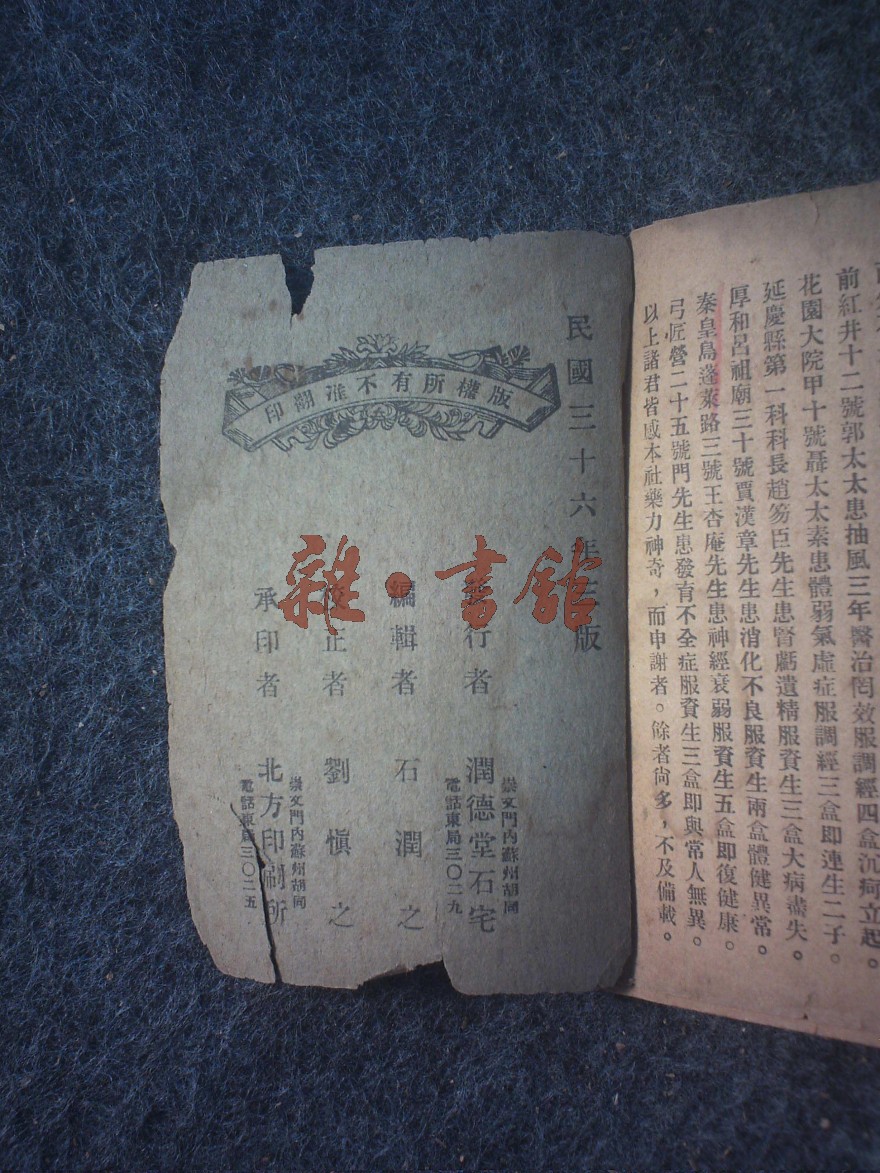 前紅井十二號郭太太患抽風三年醫治罔效服調經四盒沉疴立起。
花園大院甲十號聶太太素患體弱氣虛症服調經三盒即連生二子。
延慶縣第一科科長趙笏臣先生患腎虧遺精服資生三盒大病盡失。
厚和呂祖廟三十號賈漢章先生患消化不良服資生兩盒體健異常。
秦皇島蓬萊路三號王杏庵先生患神經衰弱服資生五盒即復健康。
弓匠營二十五號門先生患發育不全症服資生三盒即與常人無異。
以上諸君皆感本社藥力神奇,而申謝者。餘者尚多,不及備載。
民國三十六年三版
版權所有不准翻印
發行者 潤德堂石宅
崇文門內蘇州胡同
電話東局三〇二九
編輯者 石潤之
校正者 劉慎之
承印者 北方印刷所
崇文門內蘇州胡同
電話東局三〇二五
雜·書館